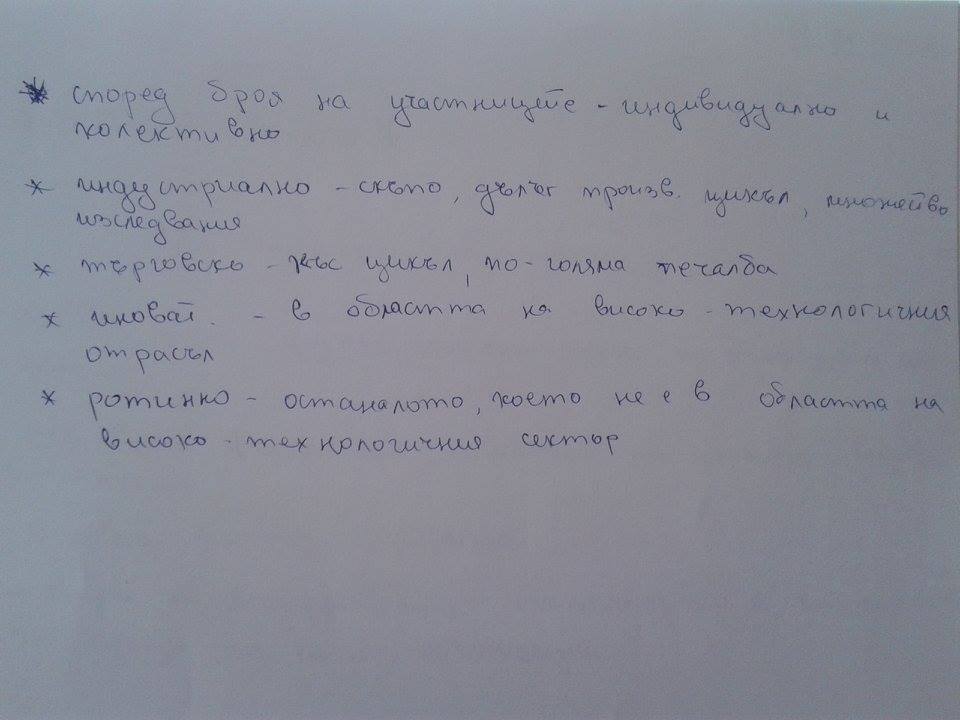 * според броя на участниците - индивидуално и
колективно
* индустриално - скъпо, дълъг произв. цикъл, множество
изследвания
* търговско - къс цикъл, по-голяма печалба
* иноват. - в областта на високо-технологичния
отрасъл
* ротинно - останалото, което не е в областта на
високо-технологичния сектор